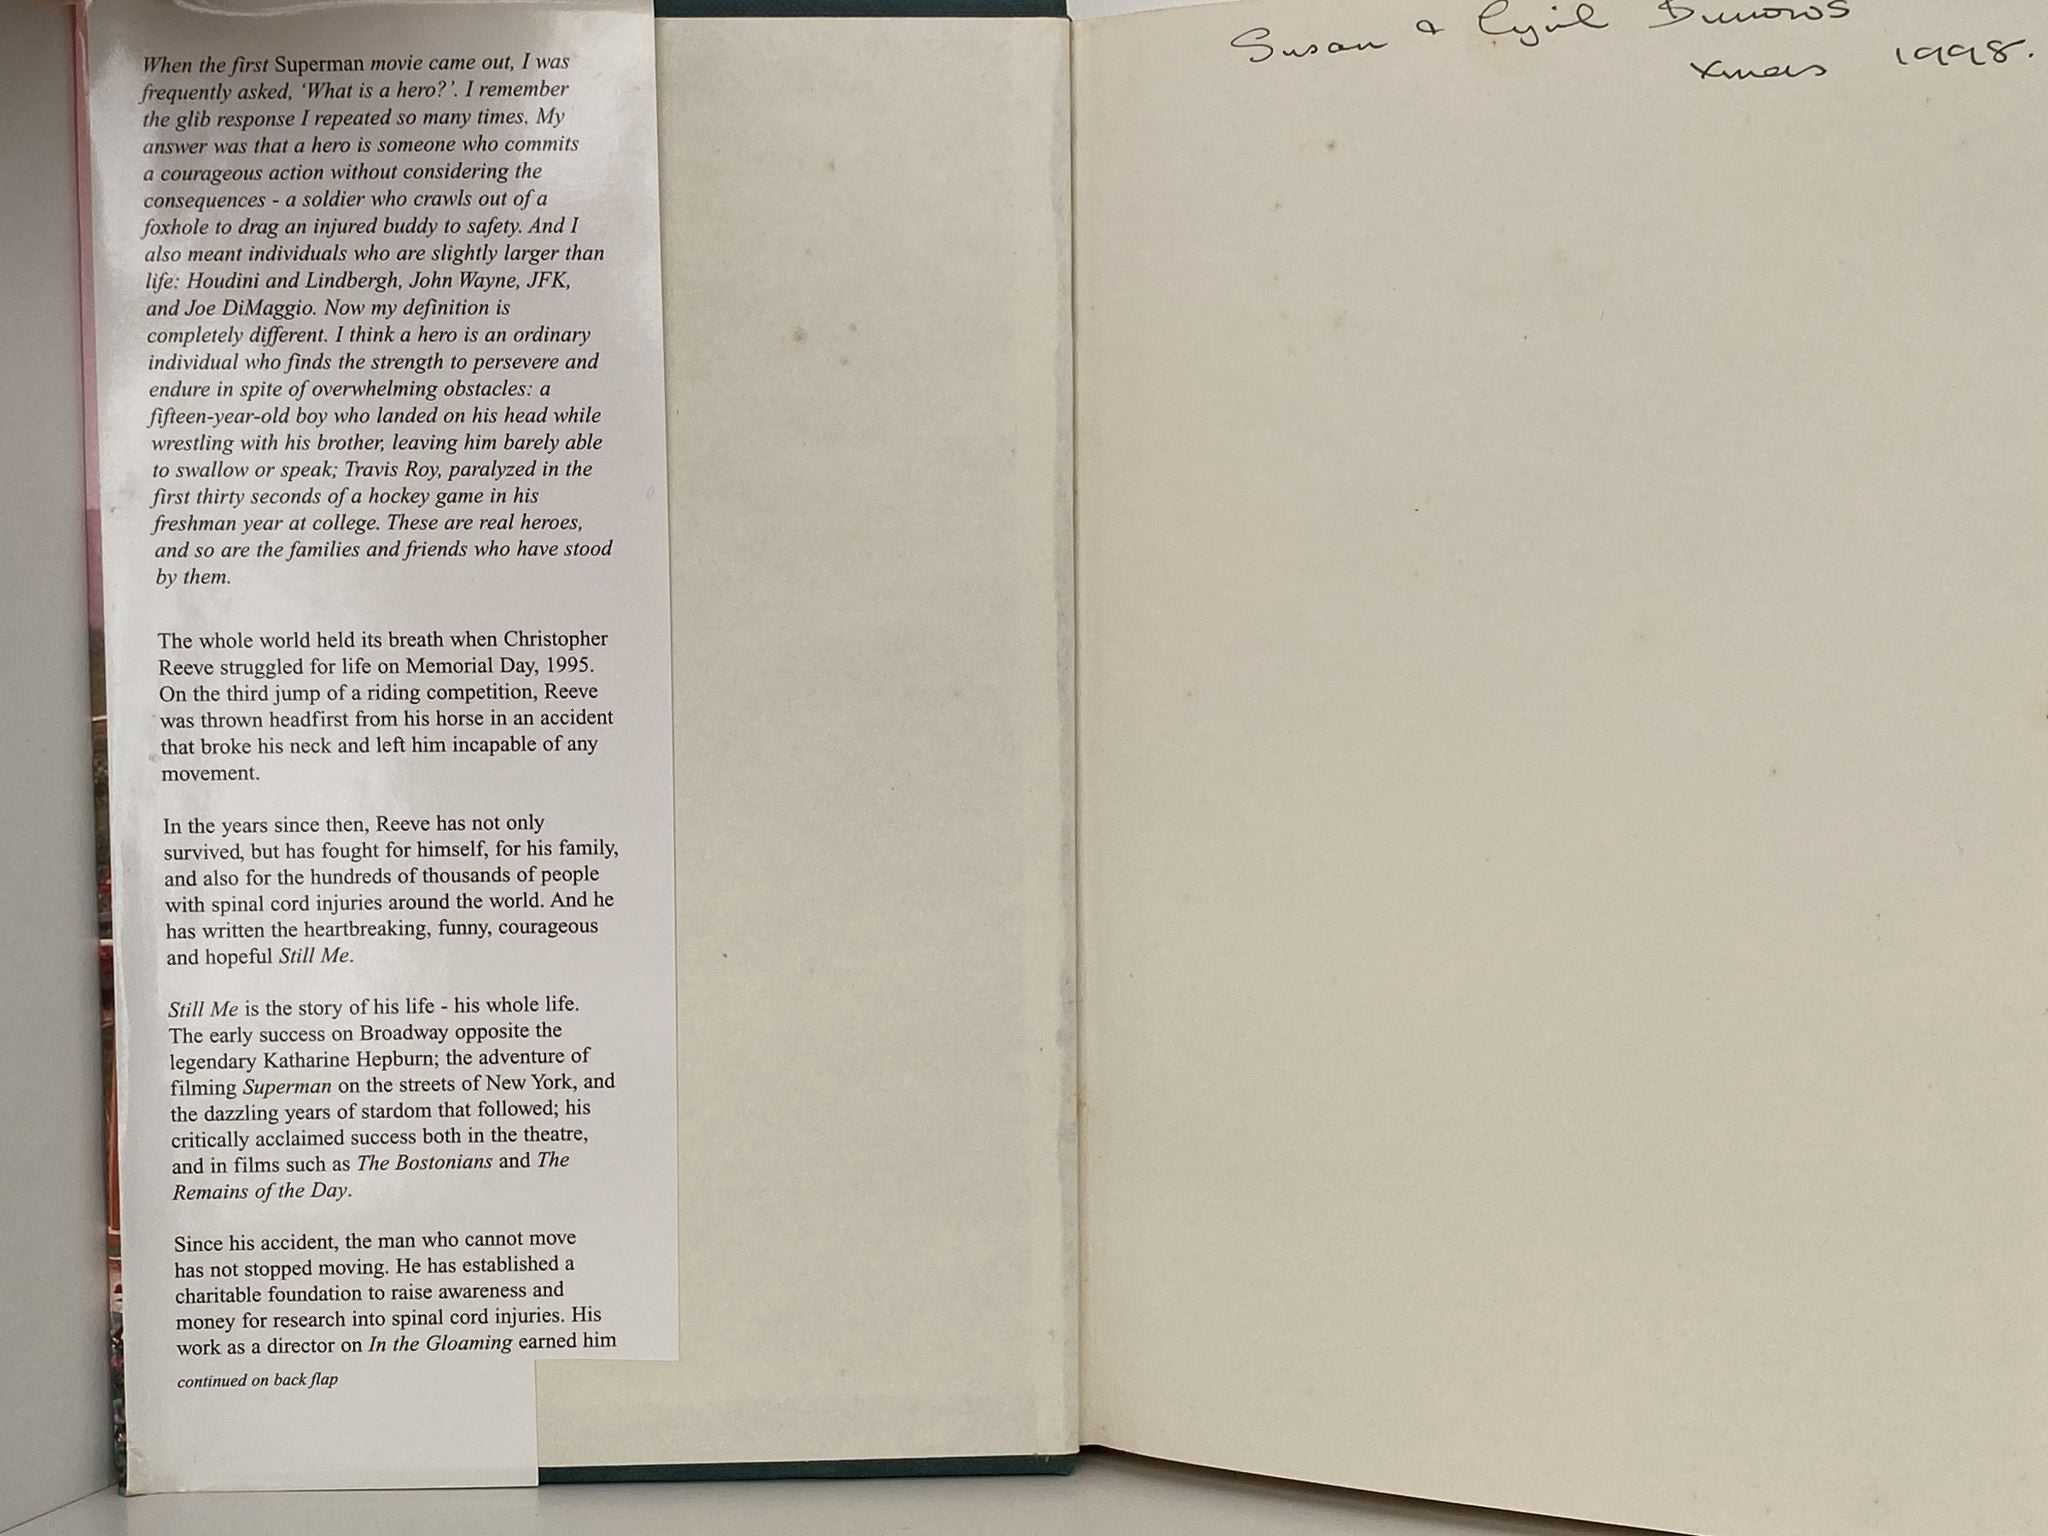 When the first Superman movie came out, I was
frequently asked, ‘What is a hero?’. I remember
the glib response I repeated so many times. My
answer was that a hero is someone who commits
a courageous action without considering the
consequences - a soldier who crawls out of a
foxhole to drag an injured buddy to safety. And I
also meant individuals who are slightly larger than
life: Houdini and Lindbergh, John Wayne, JFK,
and Joe DiMaggio. Now my definition is
completely different. I think a hero is an ordinary
individual who finds the strength to persevere and
endure in spite of overwhelming obstacles: a
fifteen-year-old boy who landed on his head while
wrestling with his brother, leaving him barely able
to swallow or speak; Travis Roy, paralyzed in the
first thirty seconds of a hockey game in his
freshman year at college. These are real heroes,
and so are the families and friends who have stood
by them.
The whole world held its breath when Christopher
Reeve struggled for life on Memorial Day, 1995.
On the third jump of a riding competition, Reeve
was thrown headfirst from his horse in an accident
that broke his neck and left him incapable of any
movement.
In the years since then, Reeve has not only
survived, but has fought for himself, for his family,
and also for the hundreds of thousands of people
with spinal cord injuries around the world. And he
has written the heartbreaking, funny, courageous
and hopeful Still Me.
Still Me is the story of his life - his whole life.
The early success on Broadway opposite the
legendary Katharine Hepburn; the adventure of
filming Superman on the streets of New York, and
the dazzling years of stardom that followed; his
critically acclaimed success both in the theatre,
and in films such as The Bostonians and The
Remains of the Day.
Since his accident, the man who cannot move
has not stopped moving. He has established a
charitable foundation to raise awareness and
money for research into spinal cord injuries. His
work as a director on In the Gloaming earned him
continued on back flap
Susan & Cyril
Xmas 1998.